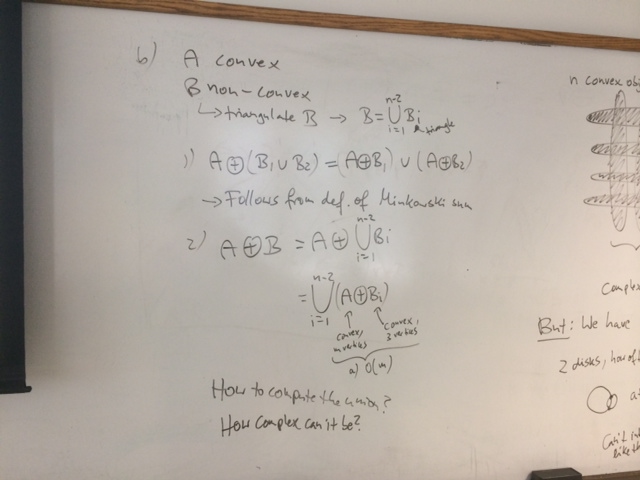 b) A convex
B non-convex
↳ triangulate B → B = ⋃ᵢ₌₁ⁿ⁻² Bᵢ
triangle
1) A⊕(B₁∪B₂) = (A⊕B₁) ∪ (A⊕B₂)
→ Follows from def. of Minkowski sum
2) A⊕B = A⊕ ⋃ᵢ₌₁ⁿ⁻² Bᵢ
= ⋃ᵢ₌₁ⁿ⁻² (A⊕Bᵢ)
convex, m vertices
convex, 3 vertices
a) O(m)
How to compute the union?
How complex can it be?
n convex obj
Complex
But: We have
2 disks, how of
a
Can't int
like th